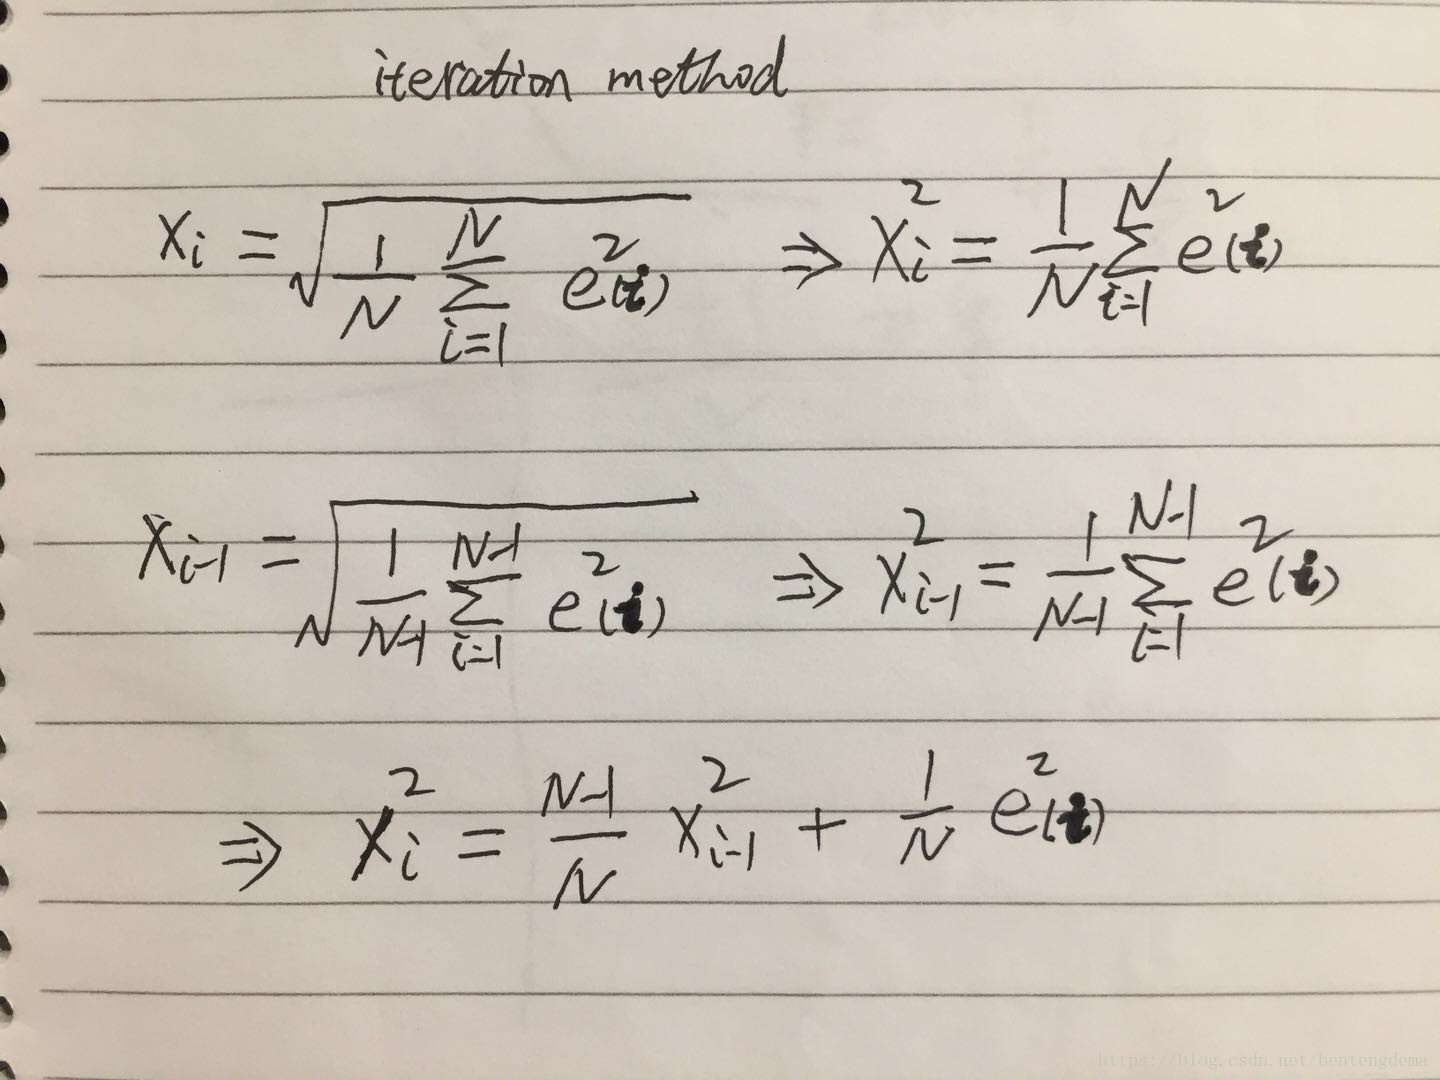 iteration method
Xᵢ = √( 1/N ∑_{i=1}^{N} e²(i) ) ⇒ Xᵢ² = 1/N ∑_{i=1}^{N} e²(i)
Xᵢ₋₁ = √( 1/(N-1) ∑_{i=1}^{N-1} e²(i) ) ⇒ Xᵢ₋₁² = 1/(N-1) ∑_{i=1}^{N-1} e²(i)
⇒ Xᵢ² = (N-1)/N Xᵢ₋₁² + 1/N e²(i)
https://blog.csdn.net/bentengdema